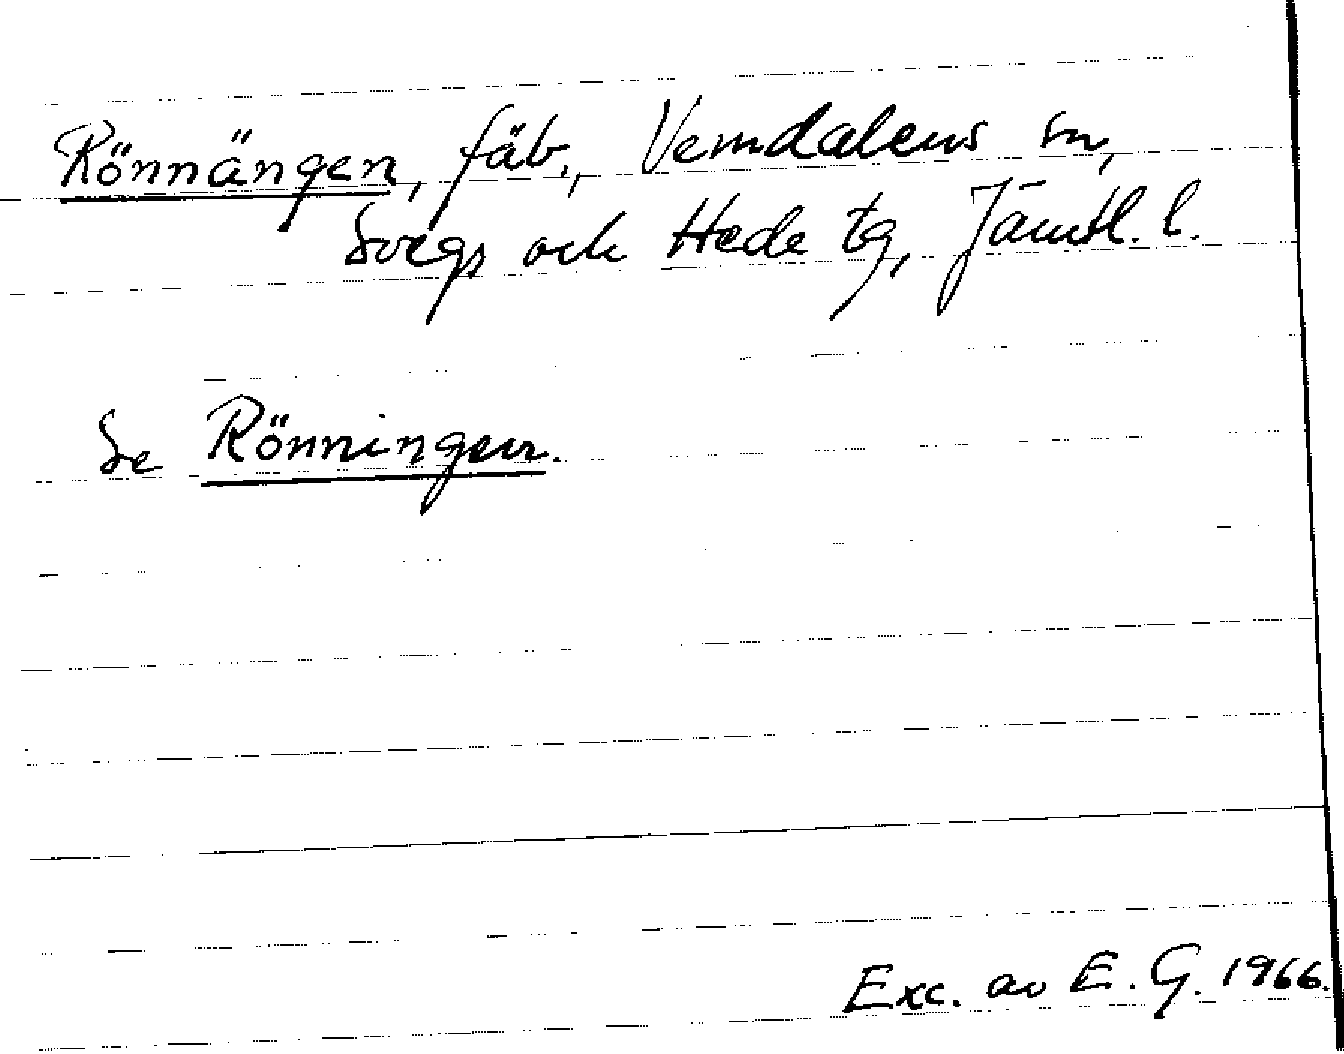 Rönnängen, fäb., Vemdalens sn,
Svegs och Hede tg, Jämtl. l.
Se Rönningen.
Exc. av E. G. 1966.